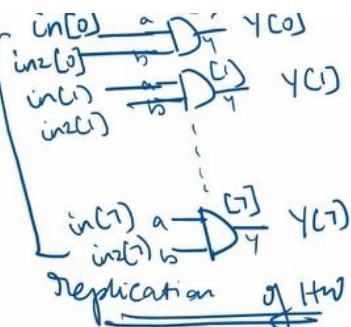 in[0] a y Y[0]
in2[0] b
in(1) a [1] y Y(1)
in2(1) b
in(7) a [7] y Y(7)
in2(7) b
Replication of HW